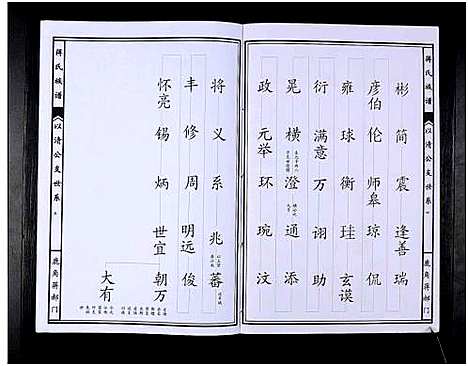 蒋氏族谱
以清公支世系
鹿角蒋郝门
彬 简 震 逢善 瑞
彦伯 伦 师皋 琼 侃
雍 球 衡 珪 玄谟
衍 满意 万 诩 助
晃 横 澄 通 添
政 元举 环 琬 汶
将 义 系 兆 蕃
丰 修 周 明远 俊
怀亮 锡 炳 世宜 朝万
大有
蒋氏族谱
以清公支世系
鹿角蒋郝门